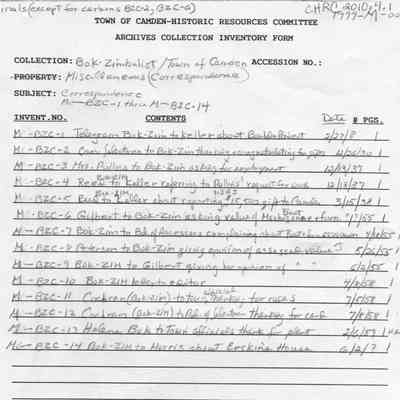 inals (except for carbons BZC-2, BZC-6) CHRC 2010.4.1
TOWN OF CAMDEN-HISTORIC RESOURCES COMMITTEE
ARCHIVES COLLECTION INVENTORY FORM
COLLECTION: Bok-Zimbalist/Town of Camden ACCESSION NO.:
PROPERTY: Miscellaneous (Correspondence)
SUBJECT: Correspondence
M-BZC-1 thru M-BZC-14
INVENT.NO. CONTENTS Date # PGS.
M-BZC-1 Telegram Bok-Zim to Keller about 1
M-BZC-2 Cam Selectmen to Bok-Zim congratulating 12/26/30 1
M-BZC-3 Mrs. Pullina to Bok-Zim asking for employment 12/13/37 1
M-BZC-4 Bok-Zim to Keller referring to request for work 12/13/37 1
M-BZC-5 to Keller about reporting gift to Camden 3/15/38 1
M-BZC-6 Gilbert to Bok-Zim asking value of return 1
M-BZC-7 Bok-Zim to Bd of Assessors complaining about 1
M-BZC-8 Peterson to Bok-Zim giving opinion of assessed value 5/26/55 1
M-BZC-9 Bok-ZIM to Gilbert giving her opinion of " " 6/2/55 1
M-BZC-10 Bok-ZIM letter to editor 1
M-BZC-11 Cochran (Bok-Zim) to town thanking for roses 7/5/58 1
M-BZC-12 Cochran (Bok-ZIM) to Bd. of Selectmen thanking for card 7/8/58 1
M-BZC-13 Helene Bok to Town officials thanks for plant 1
M-BZC-14 Bok-ZIM to Morris about Erskine House 6/2/? 1